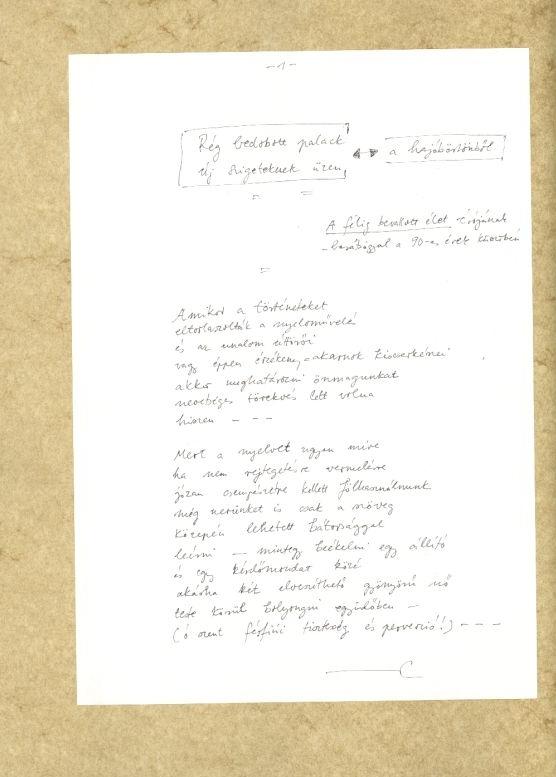 -1-
Rég bedobott palack
új szigeteknek üzen,
a hajóbörtönből
A félig bevallott élet írójának
- barátsággal a 90-es évek küszöbén
Amikor a történeteket
eltorlaszolták a nyelvművelő
és az unalom úttörői
vagy éppen érzékeny-akarnok kiscserkészei
akkor meghatározni önmagunkat
nevetséges törekvés lett volna
hiszen - - -
Mert a nyelvet ugyan mire
ha nem rejtegetésre vermelésre
józan csempészetre kellett fölhasználnunk
még nevünket is csak a szöveg
közepén lehetett bátorsággal
leírni - mintegy beékelni egy állító
és egy kérdőmondat közé
akárha két elveszíthető gyönyörű nő
teste körül bolyongni egyidőben -
(ó szent férfiúi tisztesség és perverzió!) - - -